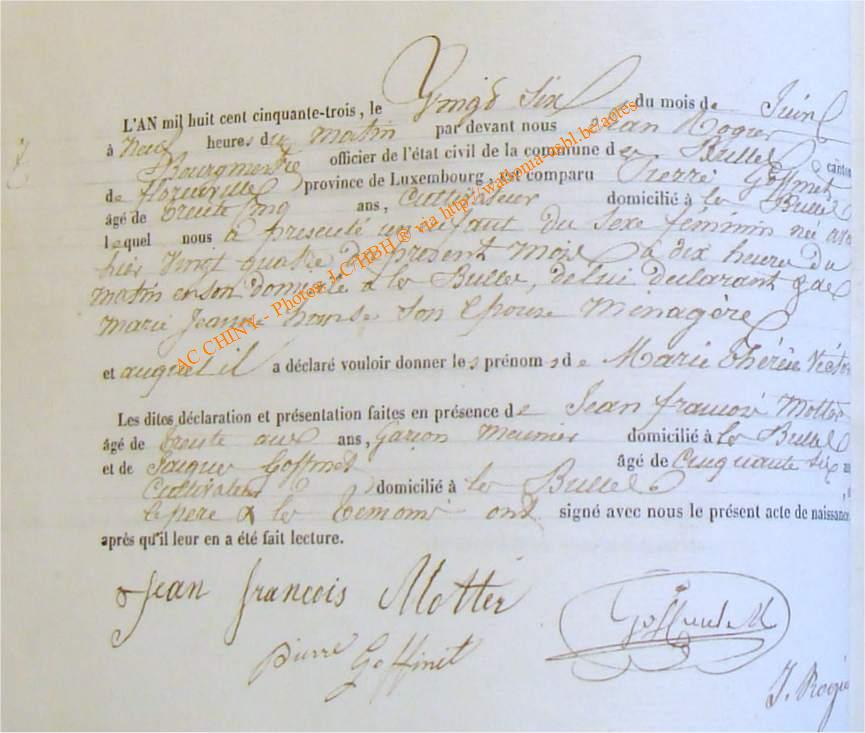 L'AN mil huit cent cinquante-trois, le Vingt Six du mois de Juin
à Neuf heures du matin par devant nous Jean Rogier
Bourgmestre officier de l'état civil de la commune des Bulles canton
de florenville province de Luxembourg, est comparu Pierre Goffinet
âgé de trente cinq ans, Cultivateur domicilié à les Bulles
lequel nous a présenté un enfant du Sexe féminin née avant
hier Vingt quatre du présent mois à dix heures du
matin en son domicile à les Bulles, de lui déclarant & de
marie Jeanne son Epouse Ménagère
et auquel il a déclaré vouloir donner les prénoms de Marie Thérèse
Les dites déclaration et présentation faites en présence de Jean françois Motter
âgé de trente ans, Garçon Meunier domicilié à les Bulles
et de Jacques Goffinet âgé de Cinquante six
Cultivateur domicilié à les Bulles
le père & les témoins ont signé avec nous le présent acte de naissance
après qu'il leur en a été fait lecture.
Jean françois Motter
Pierre Goffinet
J. Rogier
AC CHINY - Photos: J.C HBH ® via http://wallonia-asbl.be/actes